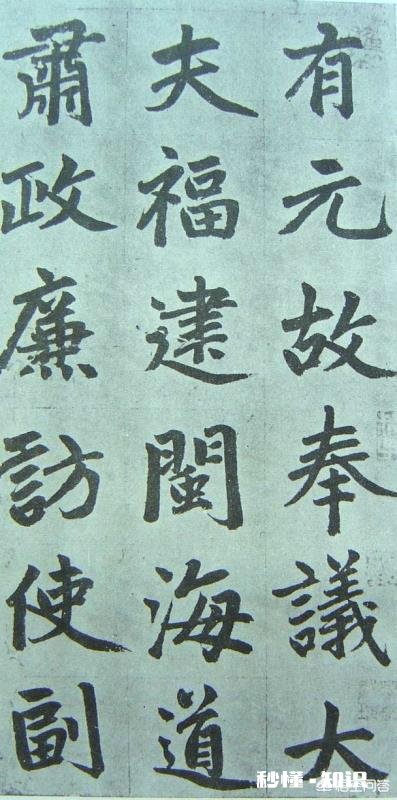 有元故奉議大
夫福建閩海道
肅政廉訪使副
秒懂·知识